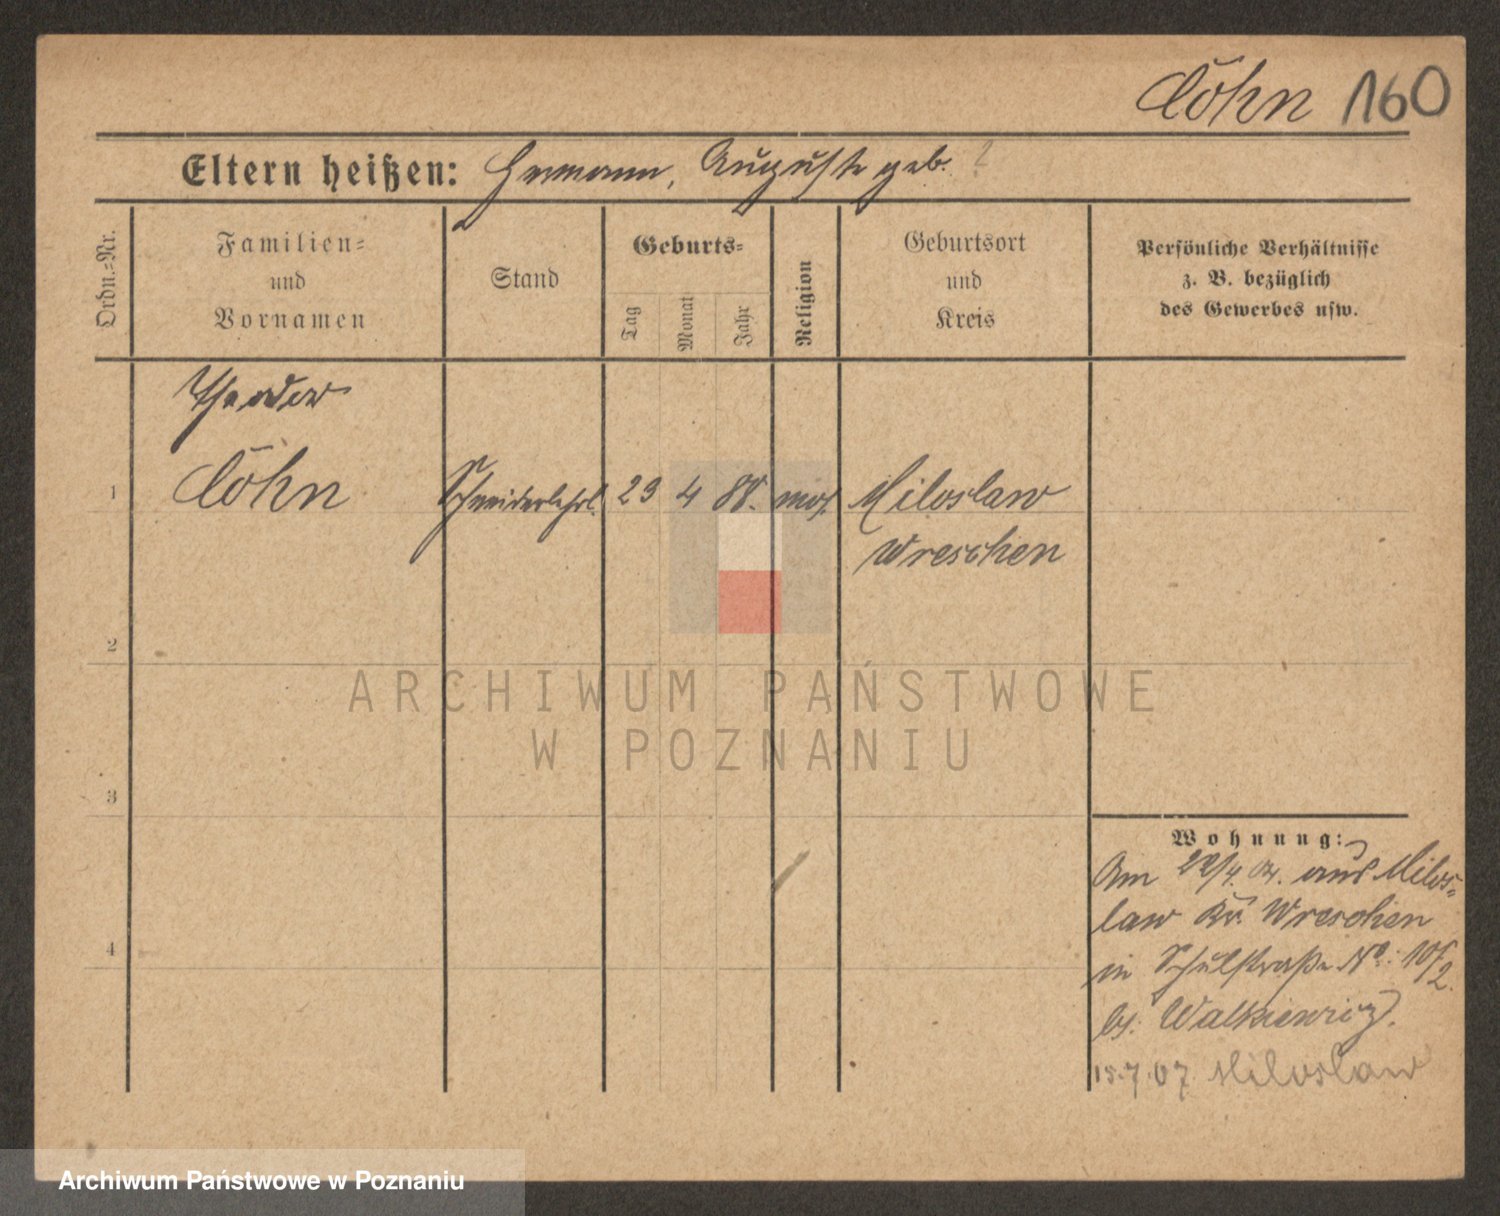 Cöhn 160
Eltern heißen: Hermann, Auguste geb. ?
Ordn.-Nr.
Familien-
und
Vornamen
Stand
Geburts-
Tag
Monat
Jahr
Religion
Geburtsort
und
Kreis
Persönliche Verhältnisse
z. B. bezüglich
des Gewerbes usw.
Theodor
1 Cöhn Schneiderlehrl. 23 4 88. mos. Miloslaw
Wreschen
2
ARCHIWUM PAŃSTWOWE
W POZNANIU
3
Wohnung:
Am 22/4. 04. aus Milos-
law Kr. Wreschen
4
in Schulstraße No: 10/2.
bei Walkiewicz.
15.7.07 Miloslaw
Archiwum Państwowe w Poznaniu